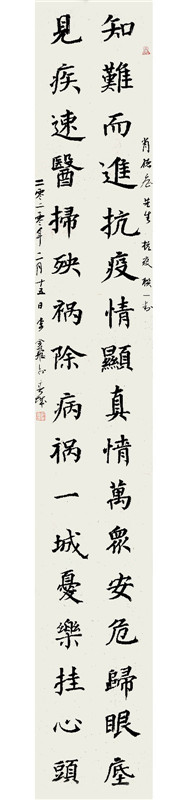 知難而進抗疫情顯真情萬眾安危歸眼塵
見疾速醫掃殃祸除病祸一城憂樂挂心頭
先生抗疫联一對
二零二零年二月十五日李